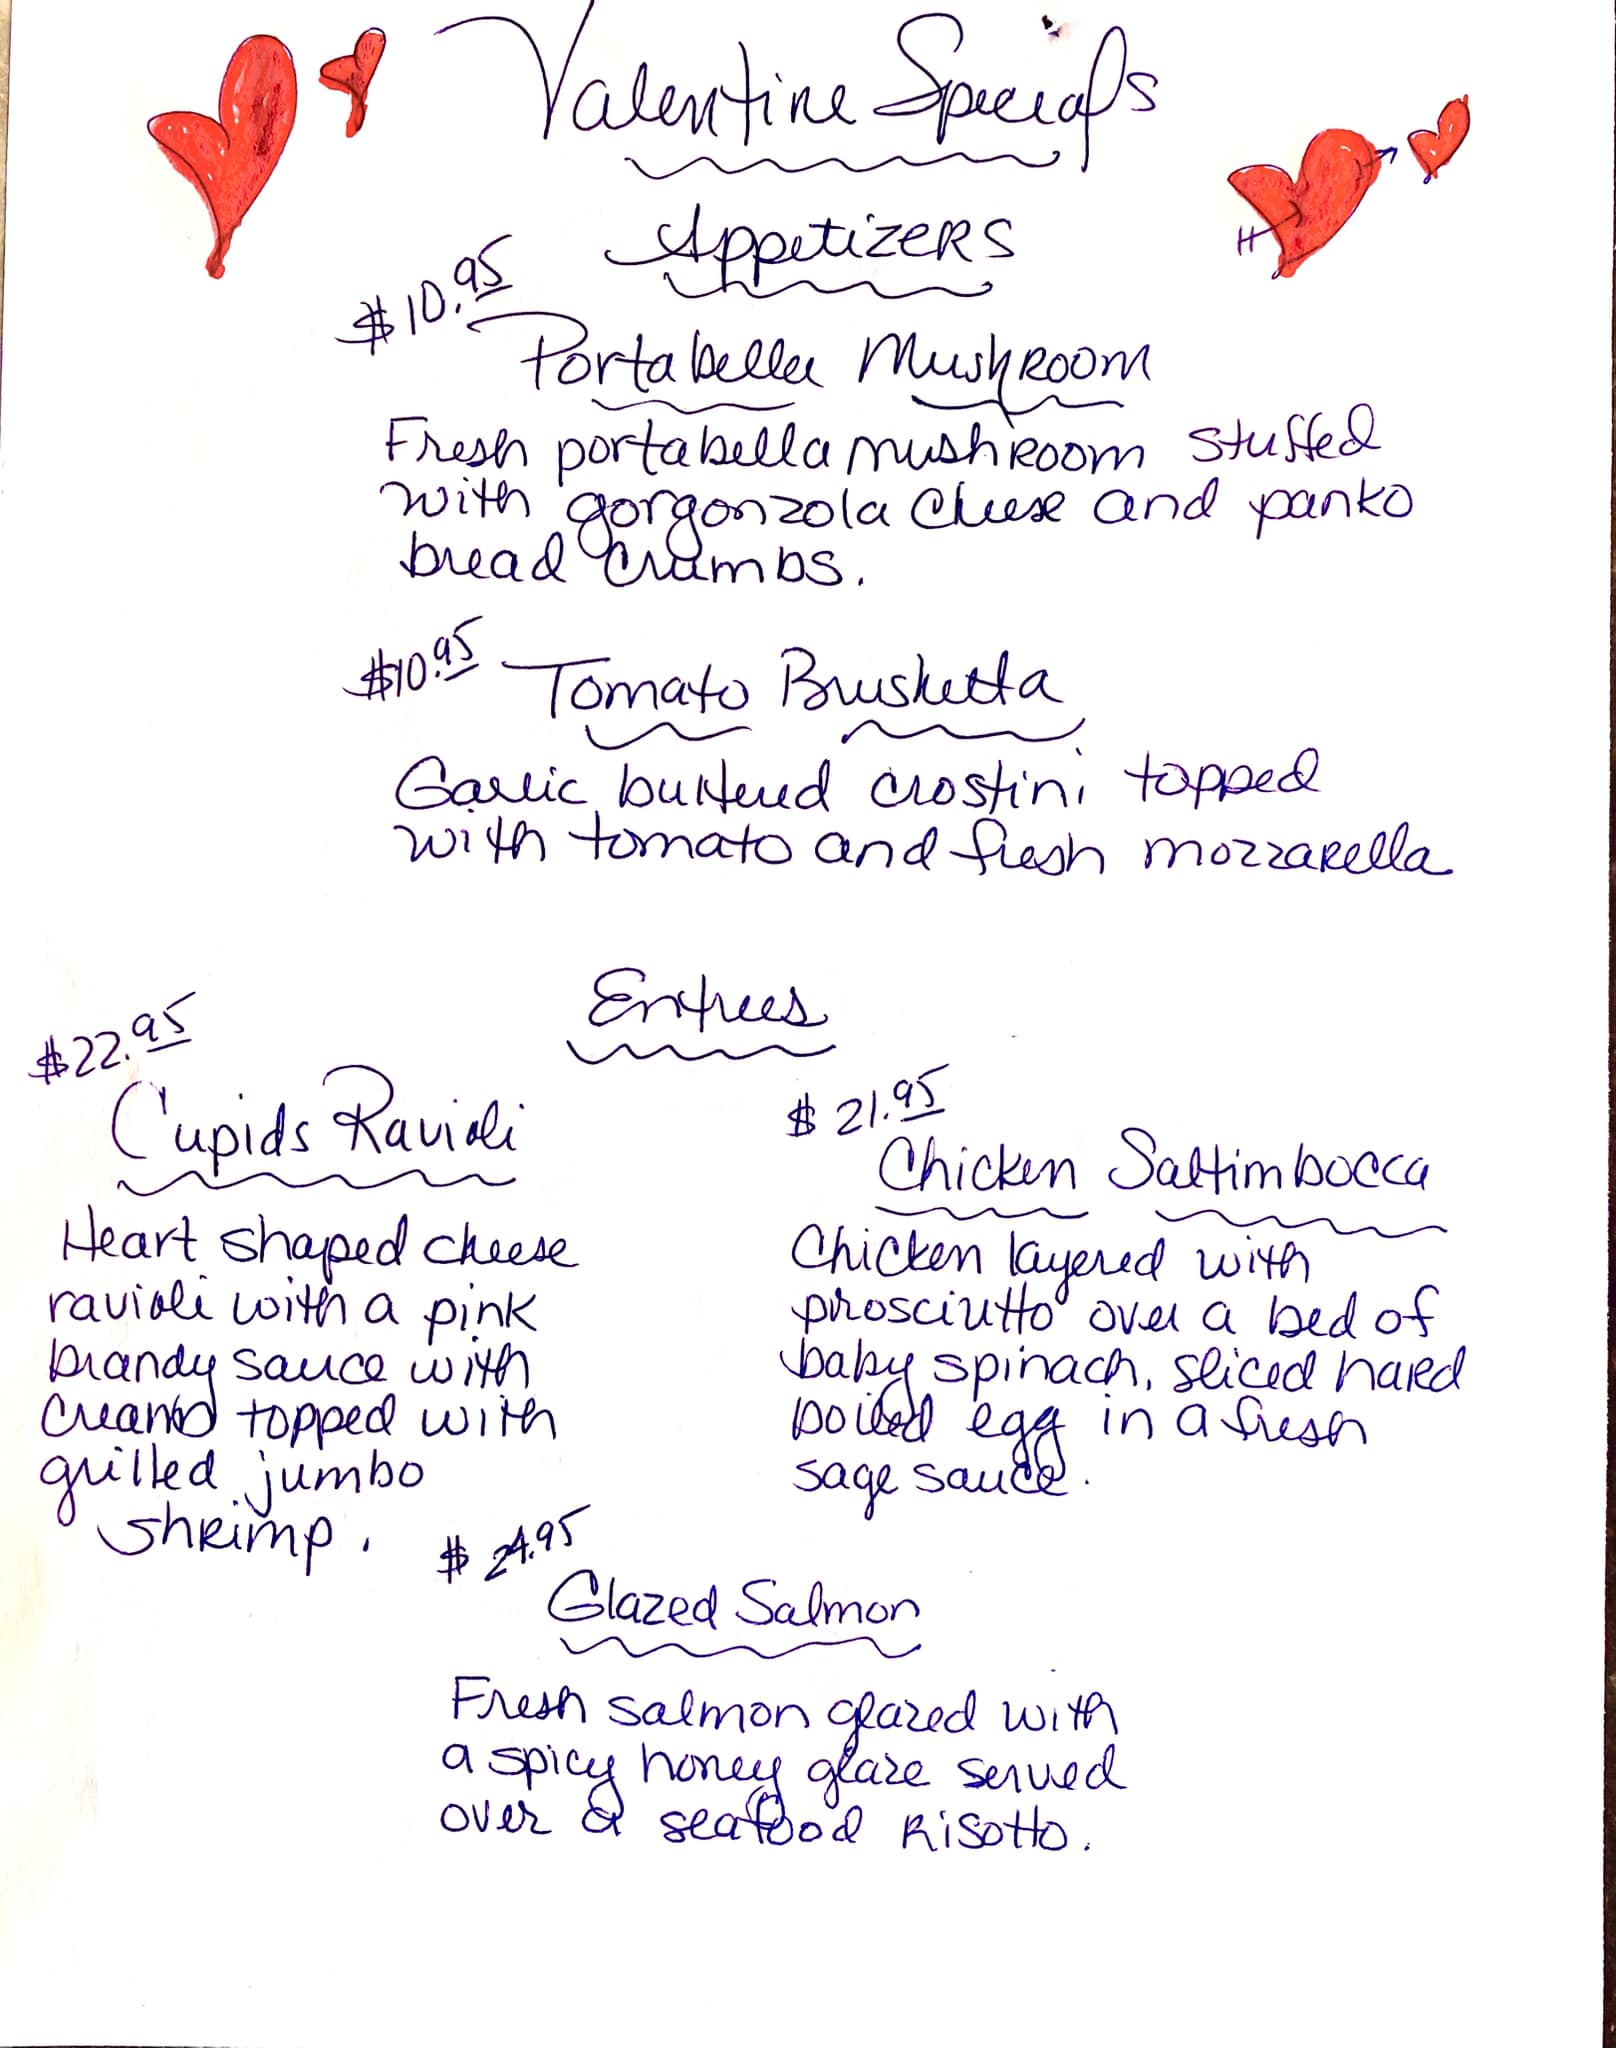 Valentine Specials
Appetizers
$10.95
Portabella Mushroom
Fresh portabella mushroom stuffed
with gorgonzola cheese and panko
bread crumbs.
$10.95 Tomato Brusketta
Garlic buttered crostini topped
with tomato and fresh mozzarella
Entrees
$22.95
Cupids Ravioli
Heart shaped cheese
ravioli with a pink
brandy sauce with
cream topped with
grilled jumbo
shrimp.
$21.95
Chicken Saltimbocca
Chicken layered with
prosciutto over a bed of
baby spinach, sliced hard
boiled egg in a fresh
sage sauce.
$24.95
Glazed Salmon
Fresh salmon glazed with
a spicy honey glaze served
over a seafood risotto.